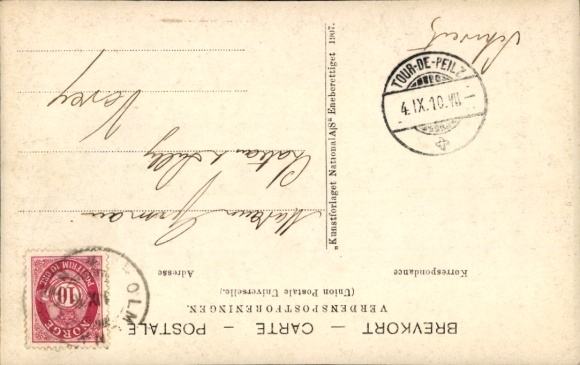 BREVKORT — CARTE — POSTALE
VERDENSPOSTFORENINGEN.
(Union Postale Universelle.)
Korrespondance
Adresse
NORGE
POSTFRIM
10
OLM
Madame
Château
Vevey
Schweiz
„Kunstforlaget National A/S“ Eneberettiget 1907.
TOUR-DE-PEILZ
4.IX.10.VII